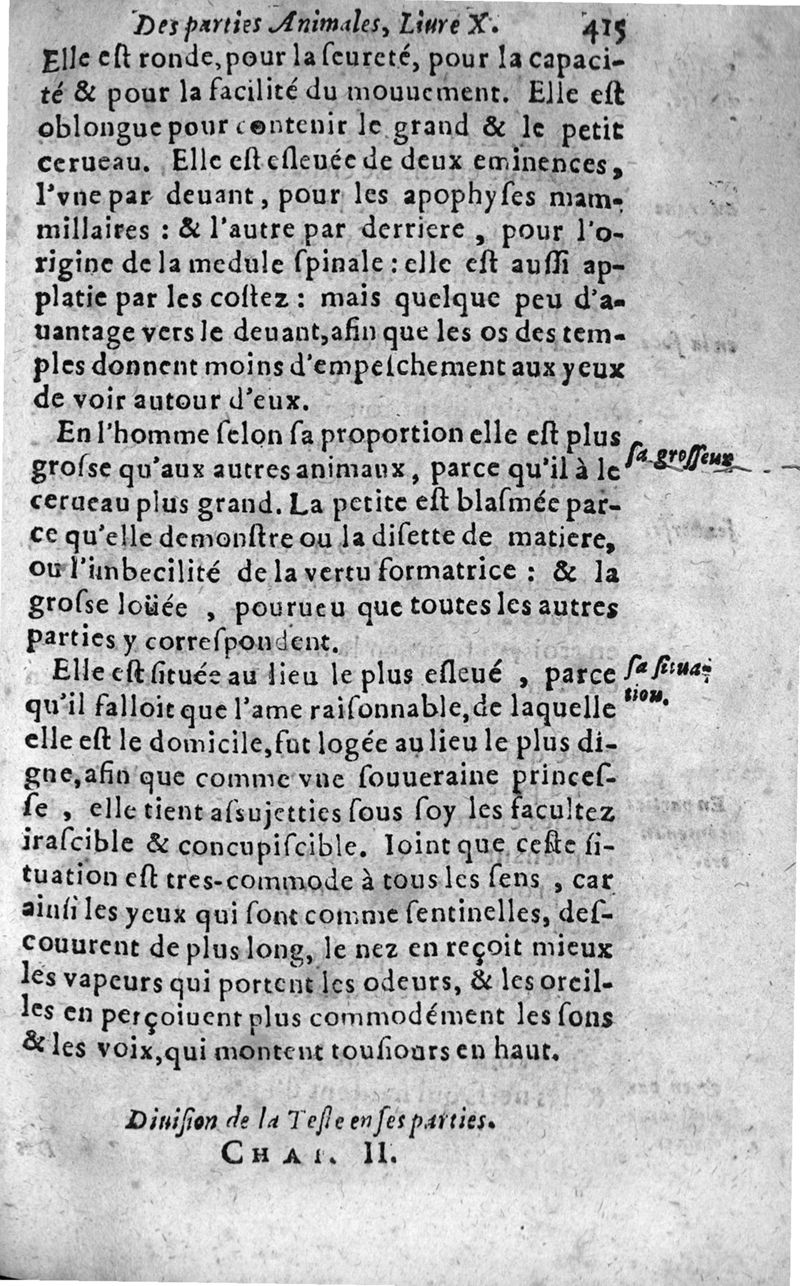 Des parties Animales, Liure X. 415
Elle eſt ronde, pour la ſeureté, pour la capaci-
té & pour la facilité du mouuement. Elle eſt
oblongue pour contenir le grand & le petit
cerueau. Elle eſt eſleuée de deux eminences,
l'vne par deuant, pour les apophyſes mam-
millaires : & l'autre par derriere , pour l'o-
rigine de la medule ſpinale : elle eſt auſſi ap-
platie par les coſtez : mais quelque peu d'a-
uantage vers le deuant, afin que les os des tem-
ples donnent moins d'empeſchement aux yeux
de voir autour d'eux.
En l'homme ſelon ſa proportion elle eſt plus
groſse qu'aux autres animaux, parce qu'il à le
ſa groſſeur
cerueau plus grand. La petite eſt blaſmée par-
ce qu'elle demonſtre ou la diſette de matiere,
ou l'imbecilité de la vertu formatrice : & la
groſse loüée , pourueu que toutes les autres
parties y correſpondent.
Elle eſt ſituée au lieu le plus eſleué , parce
ſa ſitua-
qu'il falloit que l'ame raiſonnable, de laquelle
tion.
elle eſt le domicile, fut logée au lieu le plus di-
gne, afin que comme vne ſouueraine princeſ-
ſe , elle tient aſsujetties ſous ſoy les facultez
iraſcible & concupiſcible. Ioint que ceſte ſi-
tuation eſt tres-commode à tous les ſens , car
ainſi les yeux qui ſont comme ſentinelles, deſ-
couurent de plus long, le nez en reçoit mieux
les vapeurs qui portent les odeurs, & les oreil-
les en perçoiuent plus commodément les ſons
& les voix, qui montent touſiours en haut.
Diuiſion de la Teſte en ſes parties.
CHAP. II.